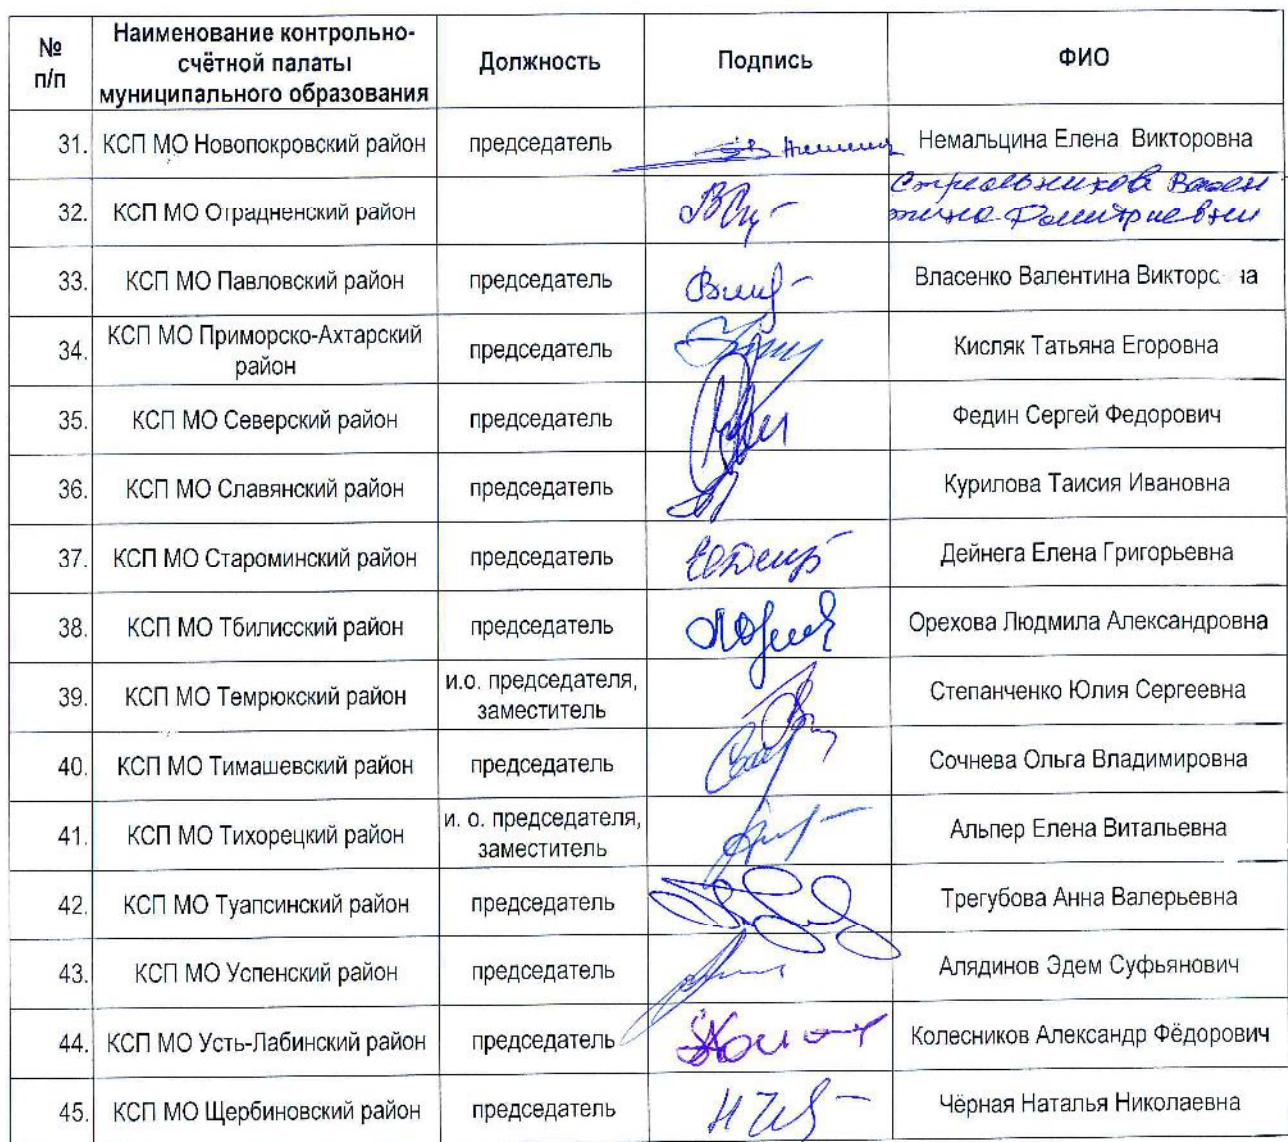 № п/п Наименование контрольно-счётной палаты муниципального образования Должность Подпись ФИО
31. КСП МО Новопокровский район председатель Немальцина Елена Викторовна
32. КСП МО Отрадненский район Стрельникова Вален
тина Дмитриевна
33. КСП МО Павловский район председатель Власенко Валентина
34. КСП МО Приморско-Ахтарский район председатель Кисляк Татьяна Егоровна
35. КСП МО Северский район председатель Федин Сергей Федорович
36. КСП МО Славянский район председатель Курилова Таисия Ивановна
37. КСП МО Староминский район председатель Дейнега Елена Григорьевна
38. КСП МО Тбилисский район председатель Орехова Людмила Александровна
39. КСП МО Темрюкский район и.о. председателя, заместитель Степанченко Юлия Сергеевна
40. КСП МО Тимашевский район председатель Сочнева Ольга Владимировна
41. КСП МО Тихорецкий район и. о. председателя, заместитель Альпер Елена Витальевна
42. КСП МО Туапсинский район председатель Трегубова Анна Валерьевна
43. КСП МО Успенский район председатель Алядинов Эдем Суфьянович
44. КСП МО Усть-Лабинский район председатель Колесников Александр Фёдорович
45. КСП МО Щербиновский район председатель Чёрная Наталья Николаевна